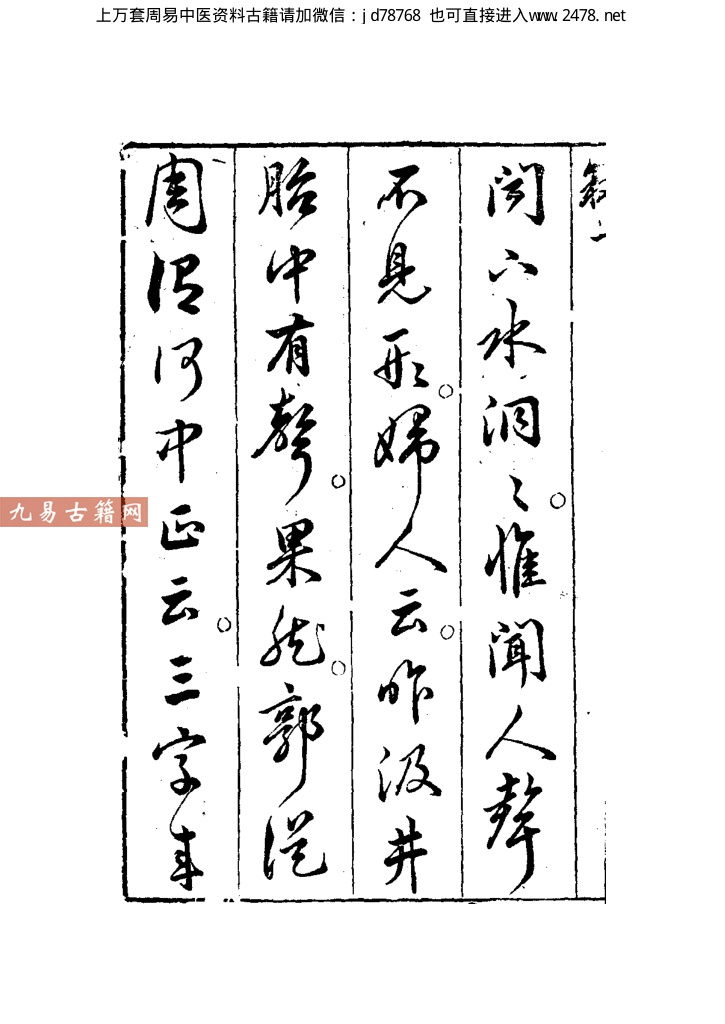 上万套周易中医资料古籍请加微信：jd78768 也可直接进入www.2478.net
水洞〻惟聞人聲
不見形婦人云昨汲井
胎中有聲果然郭從
周何中正云三字
九易古籍网